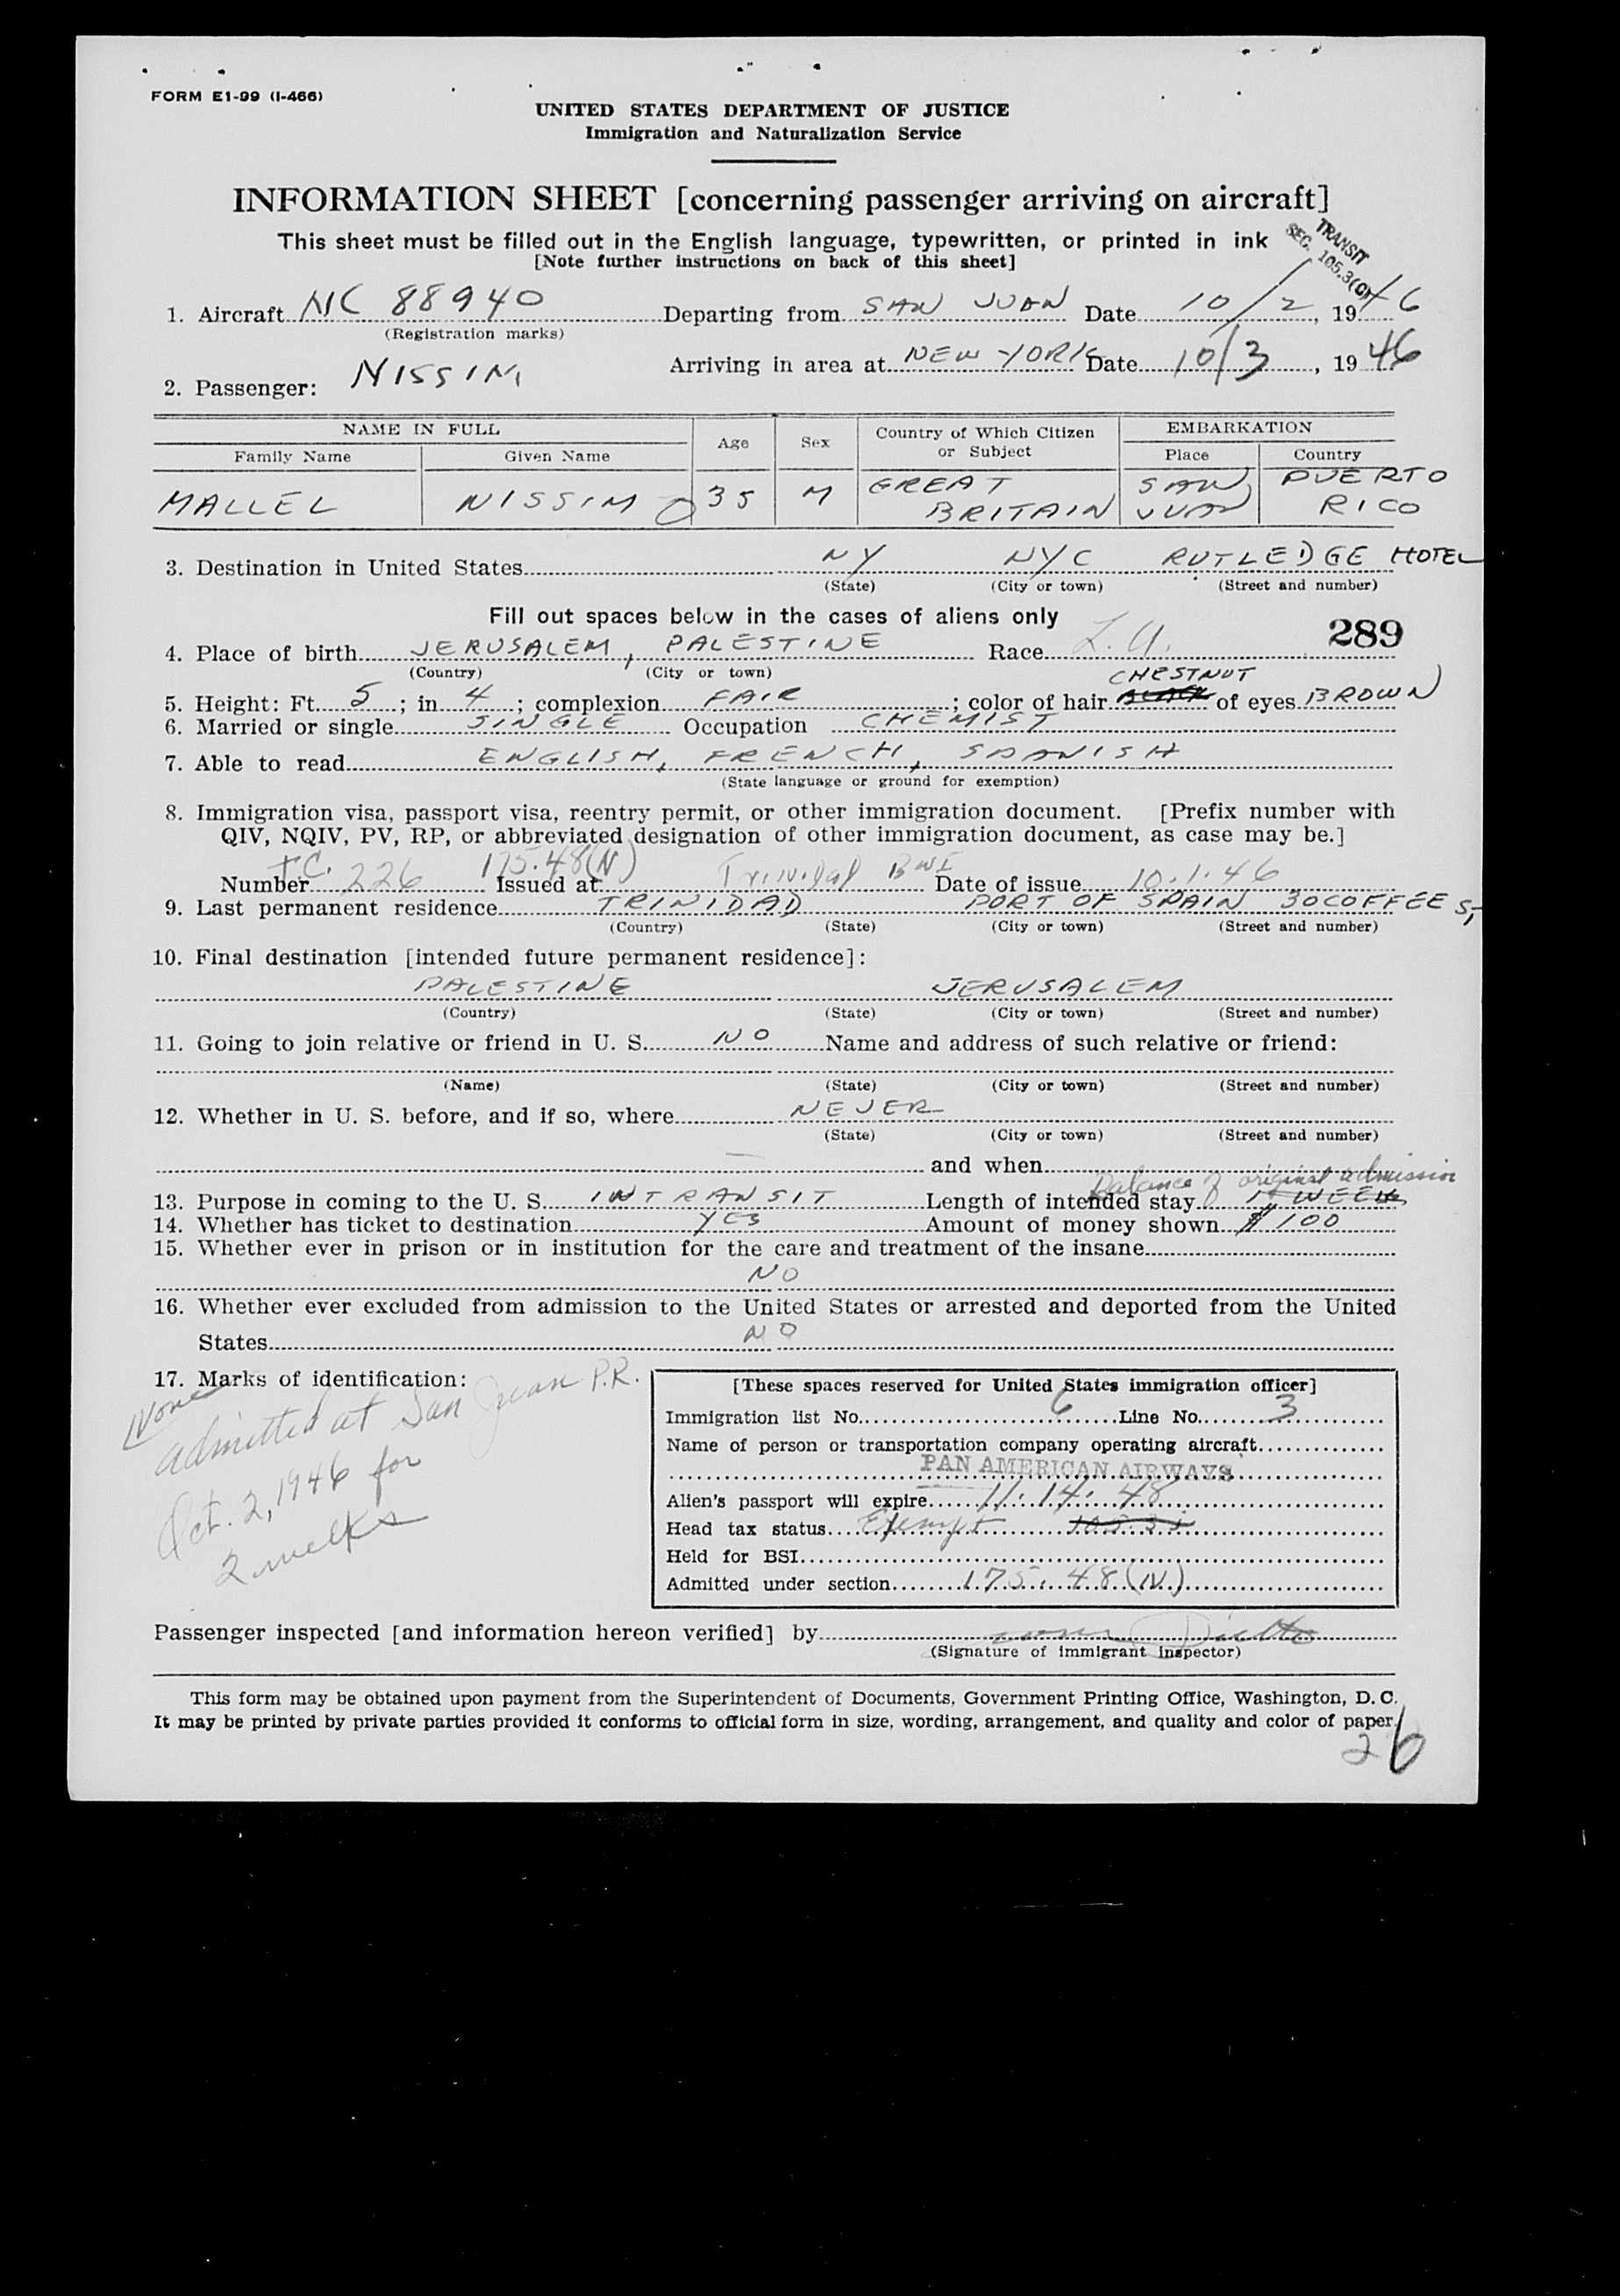 FORM E1-99 (I-466)
UNITED STATES DEPARTMENT OF JUSTICE
Immigration and Naturalization Service
INFORMATION SHEET [concerning passenger arriving on aircraft]
This sheet must be filled out in the English language, typewritten, or printed in ink
[Note further instructions on back of this sheet]
TRANSIT
SEC. 105.3(Q)
1. Aircraft NC 88940 Departing from SAN JUAN Date 10/2, 1946
(Registration marks)
Arriving in area at NEW YORK Date 10/3, 1946
2. Passenger: NISSIM
NAME IN FULL Age Sex Country of Which Citizen or Subject EMBARKATION
Family Name Given Name Place Country
MALLEL NISSIM O 35 M GREAT BRITAIN SAN JUAN PUERTO RICO
3. Destination in United States NY NYC RUTLEDGE HOTEL
(State) (City or town) (Street and number)
Fill out spaces below in the cases of aliens only
289
4. Place of birth JERUSALEM, PALESTINE Race
(Country) (City or town)
CHESTNUT
5. Height: Ft. 5; in 4; complexion FAIR; color of hair BLACK of eyes BROWN
6. Married or single SINGLE Occupation CHEMIST
7. Able to read ENGLISH, FRENCH, SPANISH
(State language or ground for exemption)
8. Immigration visa, passport visa, reentry permit, or other immigration document. [Prefix number with
QIV, NQIV, PV, RP, or abbreviated designation of other immigration document, as case may be.]
T.C. 175.48(N)
Number 226 Issued at Trinidad BWI Date of issue 10.1.46
9. Last permanent residence TRINIDAD PORT OF SPAIN 30 COFFEE ST
(Country) (State) (City or town) (Street and number)
10. Final destination [intended future permanent residence]:
PALESTINE JERUSALEM
(Country) (State) (City or town) (Street and number)
11. Going to join relative or friend in U. S. NO Name and address of such relative or friend:
(Name) (State) (City or town) (Street and number)
12. Whether in U. S. before, and if so, where NEVER
(State) (City or town) (Street and number)
and when
Balance of original admission
13. Purpose in coming to the U. S. IN TRANSIT Length of intended stay 1 WEEK
14. Whether has ticket to destination YES Amount of money shown $100
15. Whether ever in prison or in institution for the care and treatment of the insane
NO
16. Whether ever excluded from admission to the United States or arrested and deported from the United
States NO
17. Marks of identification:
None
admitted at San Juan P.R.
Oct. 2, 1946 for
2 weeks
[These spaces reserved for United States immigration officer]
Immigration list No. 6 Line No. 3
Name of person or transportation company operating aircraft
PAN AMERICAN AIRWAYS
Alien's passport will expire 11.14.48
Head tax status Exempt
Held for BSI
Admitted under section 175.48(N)
Passenger inspected [and information hereon verified] by
(Signature of immigrant inspector)
This form may be obtained upon payment from the Superintendent of Documents, Government Printing Office, Washington, D. C.
It may be printed by private parties provided it conforms to official form in size, wording, arrangement, and quality and color of paper.
26